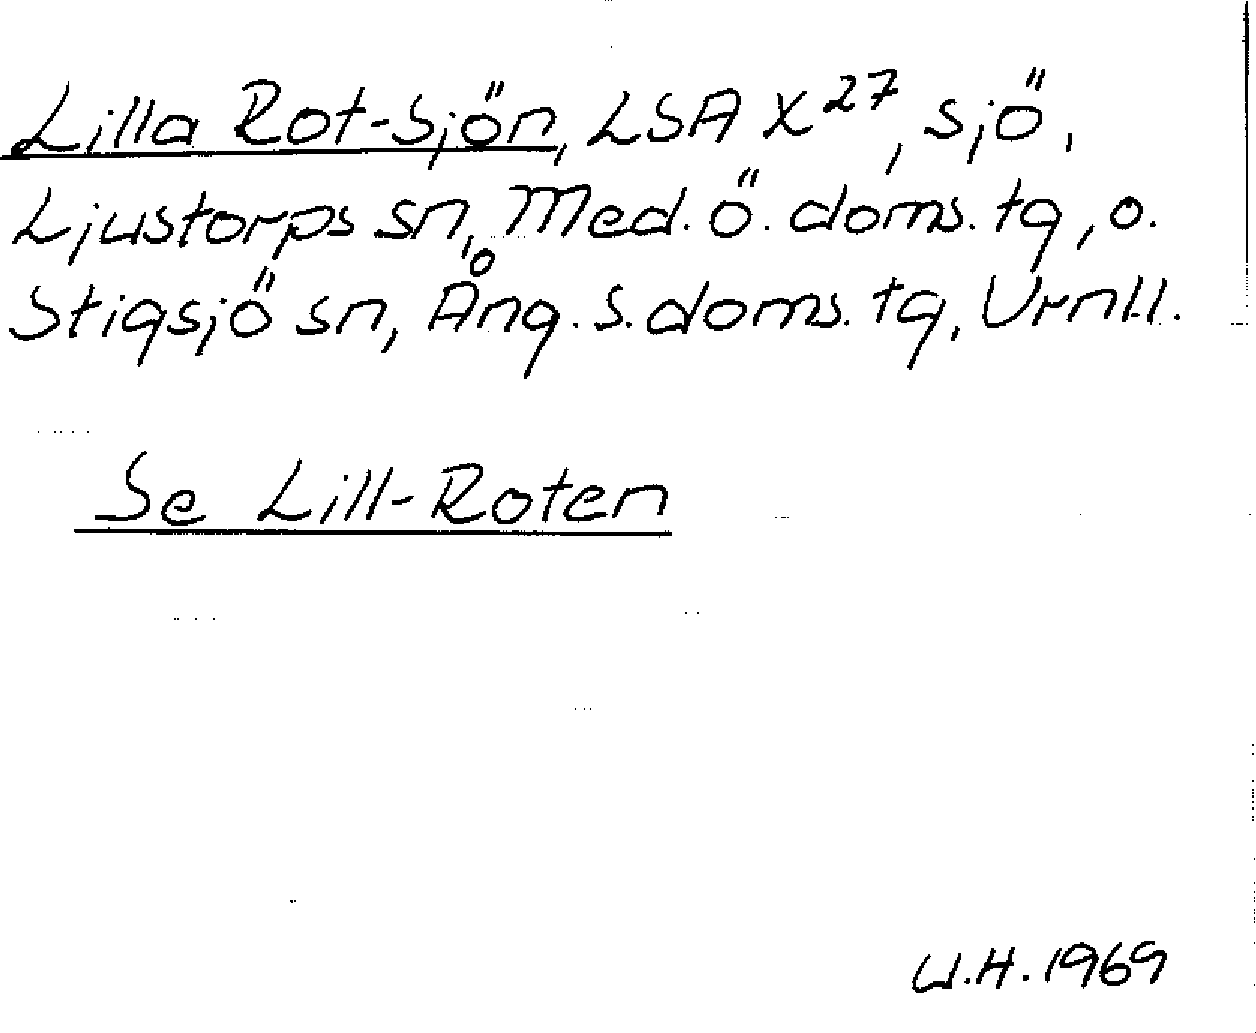 Lilla Rot-Sjön, LSA X27, sjö,
Ljustorps sn, Med. Ö. doms. tg, o.
Stigsjö sn, Ång. S. doms. tg, Vrnll.
Se Lill-Roten
W.H. 1969